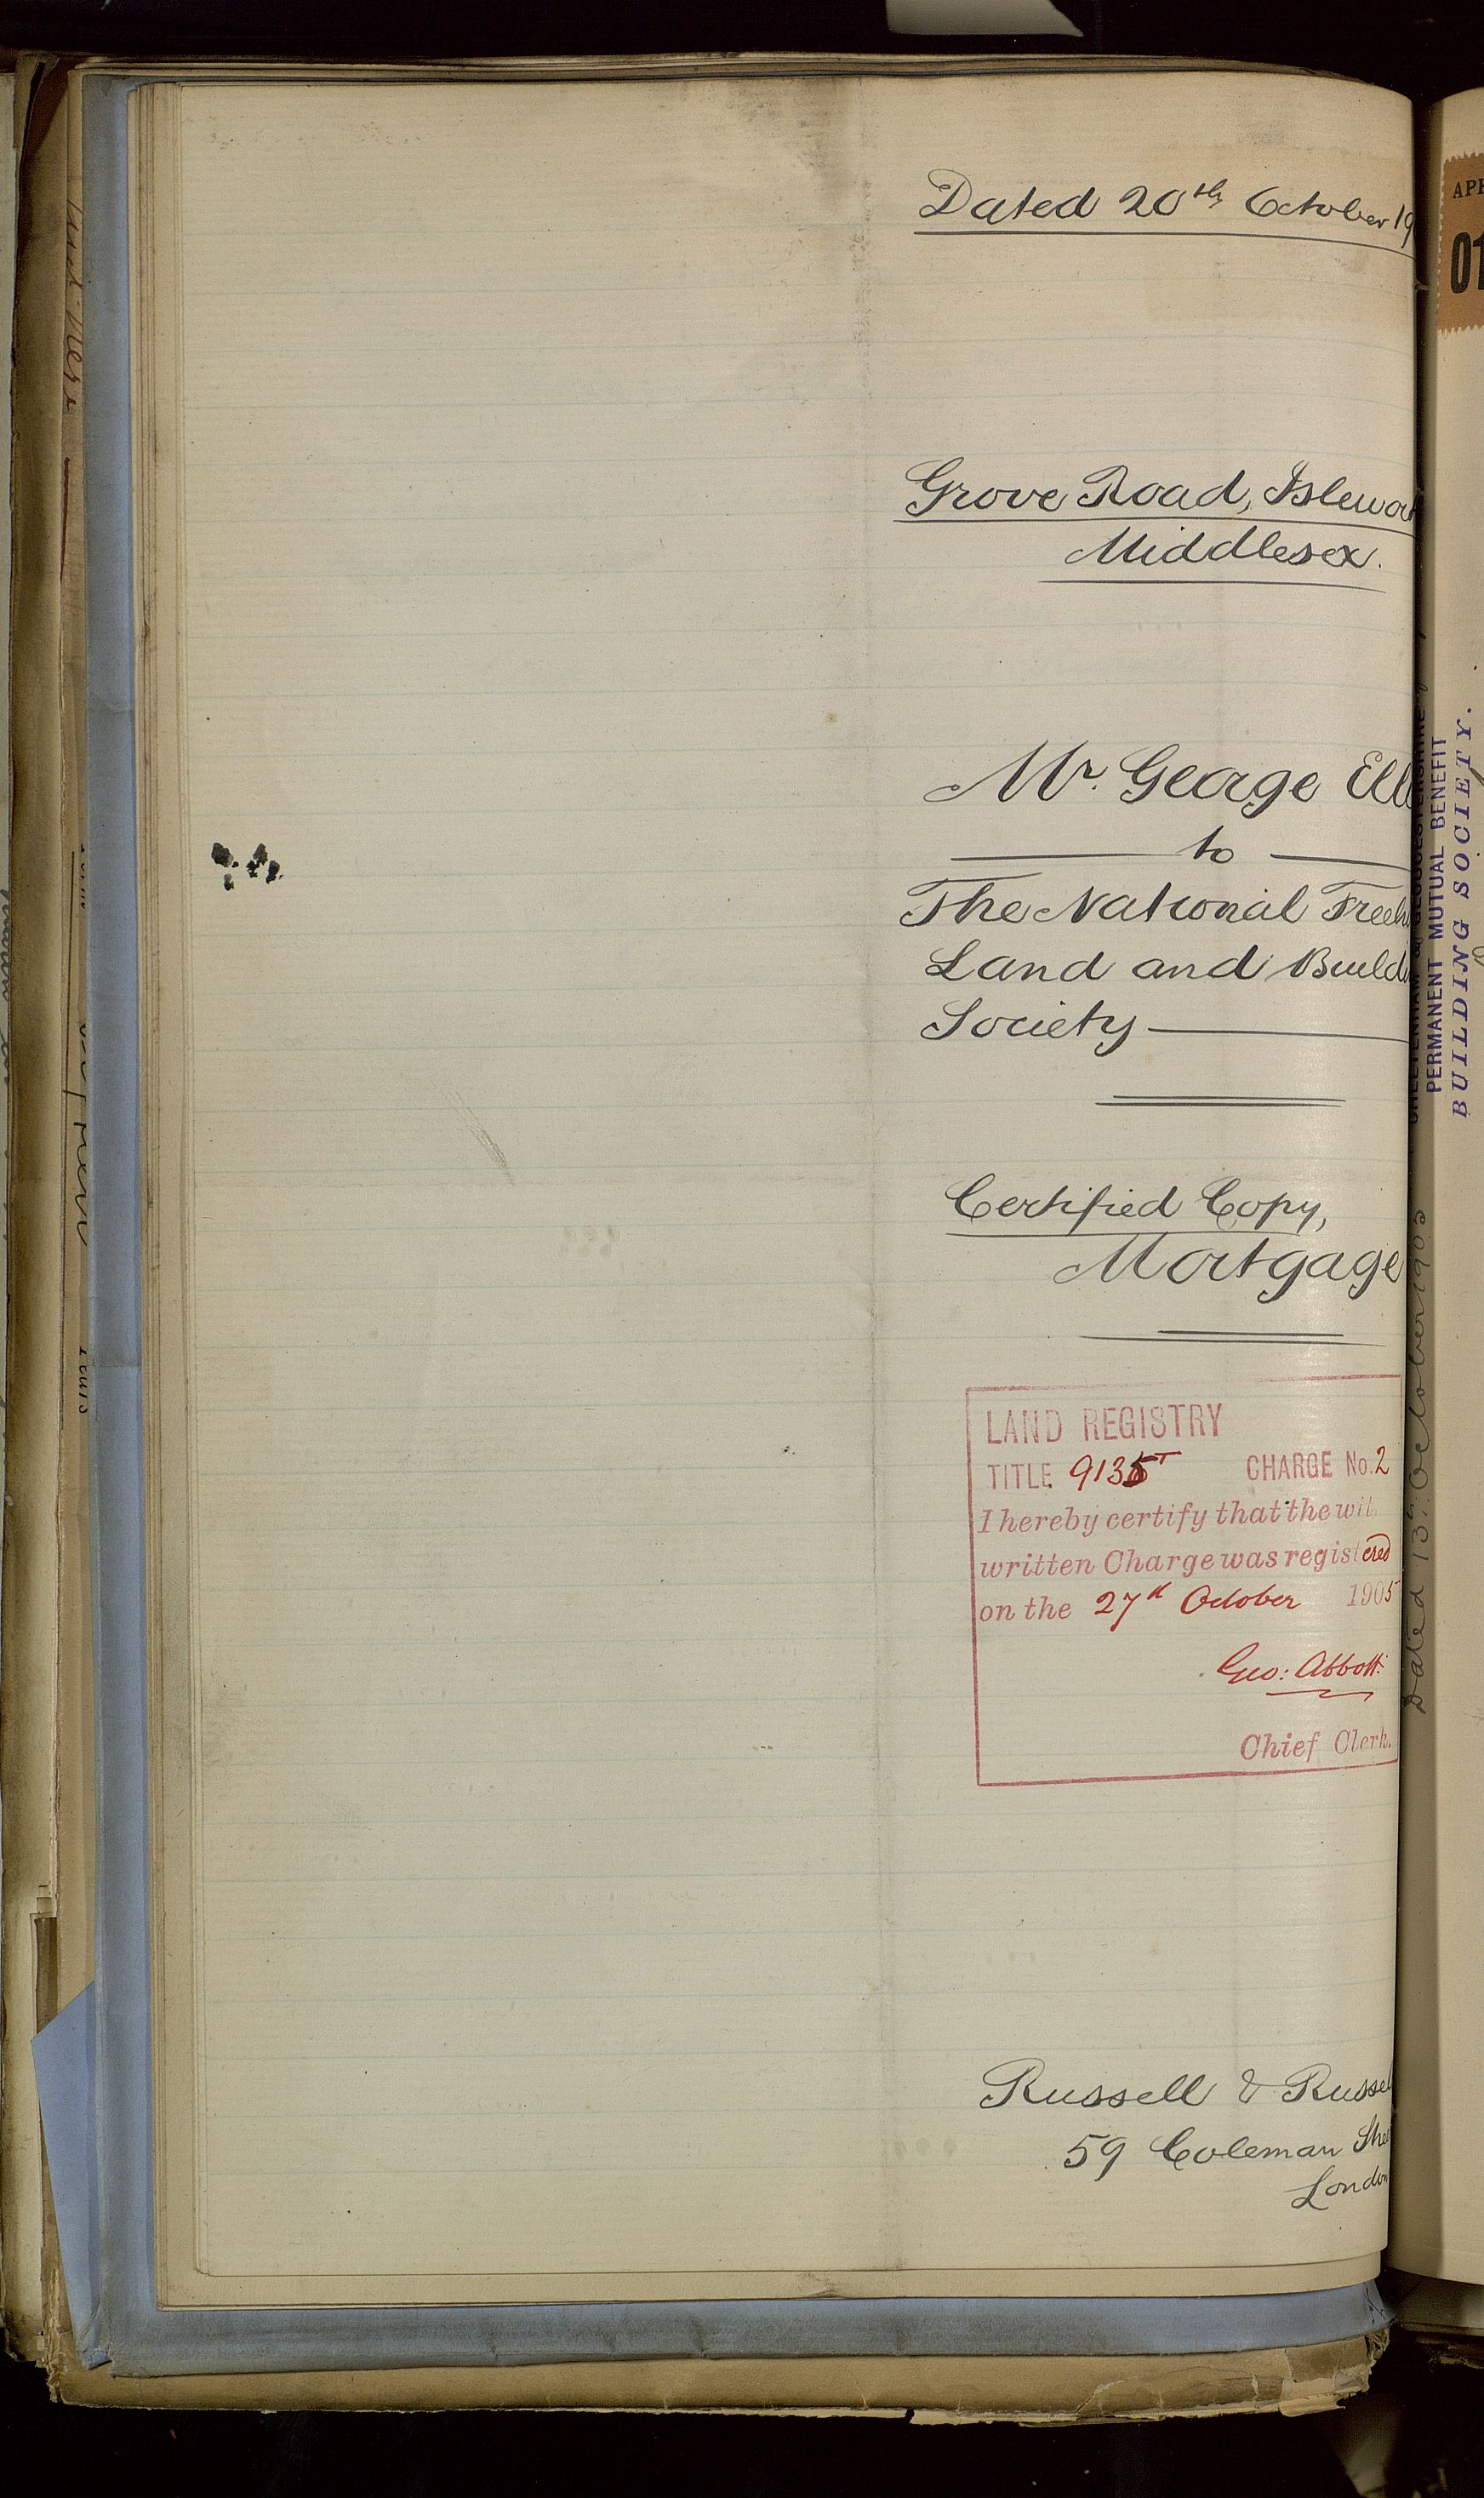 Dated 20th October 19
Grove Road, Islewort
Middlesex.
Mr. George Ell
to
The National Freeh
Land and Build
Society
Certified Copy,
Mortgage
LAND REGISTRY
TITLE 9135 CHARGE No. 2
I hereby certify that the wit
written Charge was registered
on the 27th October 1905
Geo: Abbott.
Chief Clerk.
Russell & Russel
59 Coleman Stree
London
APP
01
PERMANENT MUTUAL BENEFIT
BUILDING SOCIETY.
Dated 13th October 1903